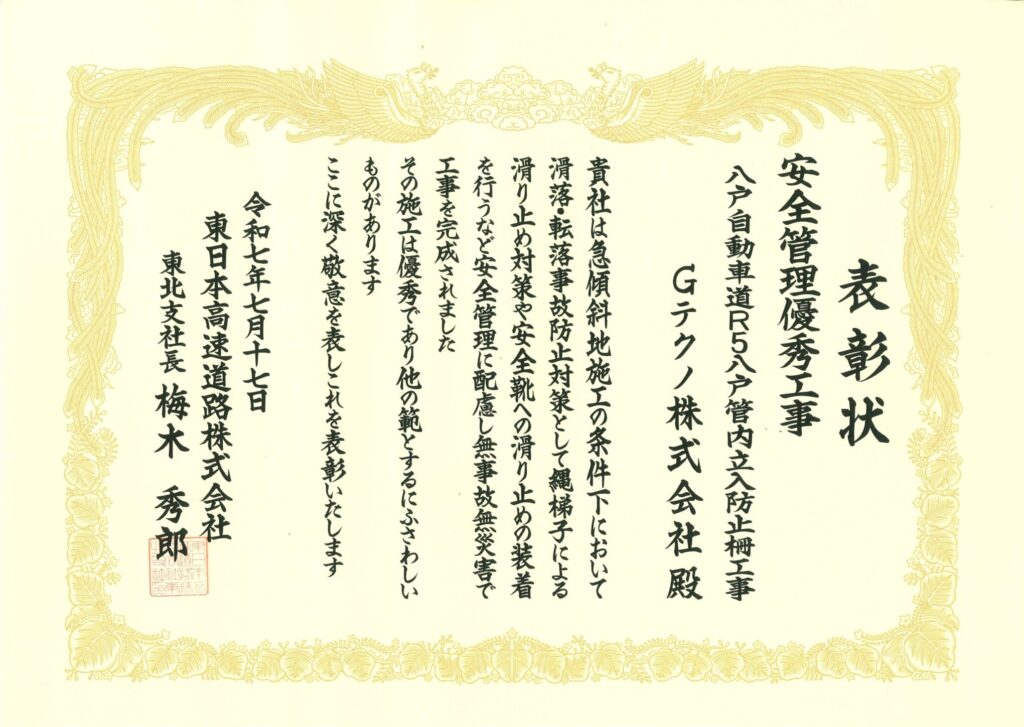 表彰状
安全管理優秀工事
八戸自動車道R5八戸管内立入防止柵工事
Gテクノ株式会社殿
貴社は急傾斜地施工の条件下において
滑落・転落事故防止対策として縄梯子による
滑り止め対策や安全靴への滑り止めの装着
を行うなど安全管理に配慮し無事故無災害で
工事を完成されました
その施工は優秀であり他の範とするにふさわしい
ものがあります
ここに深く敬意を表しこれを表彰いたします
令和七年七月十七日
東日本高速道路株式会社
東北支社長 梅木 秀郎